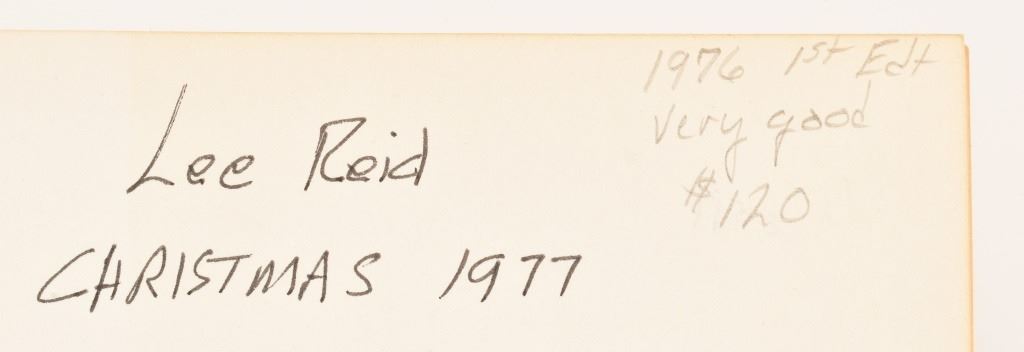 1976 1st Edt
Very good
$120
Lee Reid
CHRISTMAS 1977